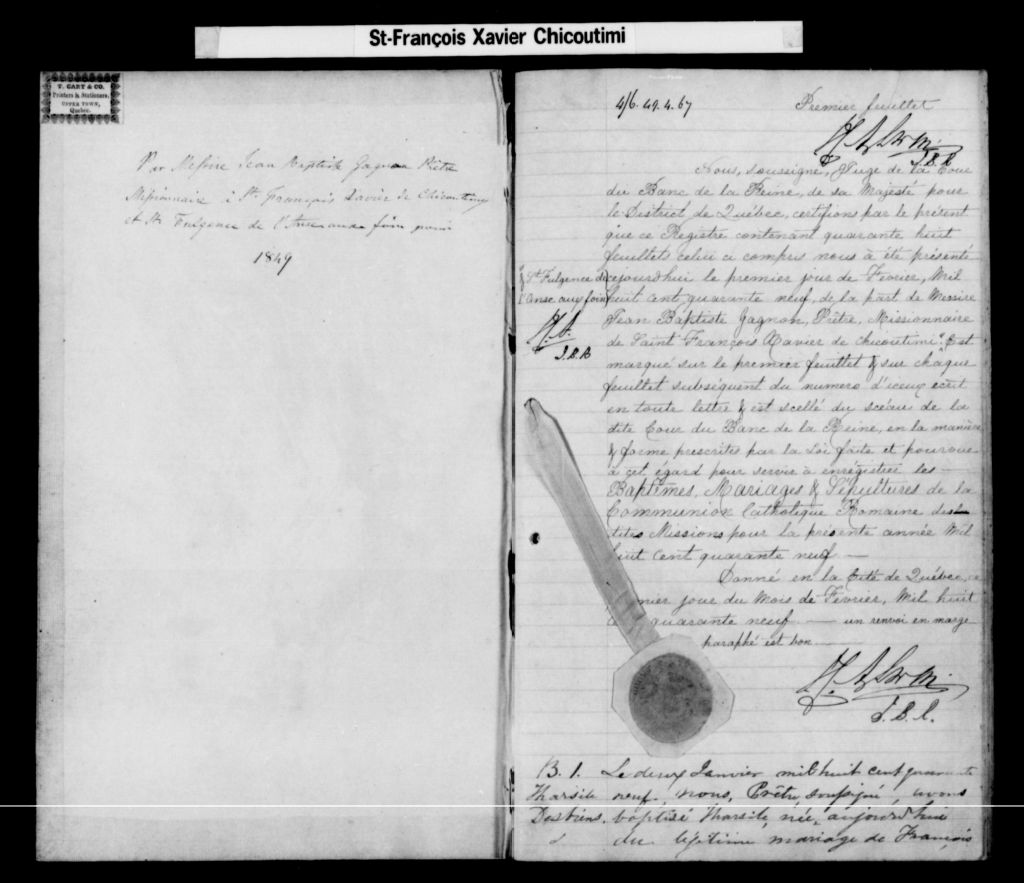 St-François Xavier Chicoutimi
T. CARY & CO.
Printers & Stationers,
UPPER TOWN,
Quebec.
Par Messire Jean Baptiste Gagnon Prêtre
Missionnaire à St François Xavier de Chicoutimy
et St Fulgence de l'Anse aux foin pour
1849
4/6. 49. 4. 67
Premier feuillet
J.B.R
Nous, soussigné, Juge de la Cour
du Banc de la Reine, de sa Majesté pour
le District de Québec, certifions par le présent
que ce Registre contenant quarante huit
feuillets celui ci compris nous à été présenté
cejourdhui le premier jour de Février, Mil
huit cent quarante neuf, de la part de Messire
Jean Baptiste Gagnon, Prêtre, Missionnaire
de Saint François Xavier de Chicoutimi & Est
marqué sur le premier feuillet & sur châque
feuillet subséquent du numero d'iceux ecrit
en toute lettre & est scellé du scéau de la
dite Cour du Banc de la Reine, en la manière
& forme prescrites par la Loi faite et pourvue
à cet égard pour servir à enrégistrer les
Baptêmes, Mariages & Sépultures de la
Communion Catholique Romaine des
dites Missions pour la présente année Mil
huit Cent quarante neuf —
Donné en la Cité de Québec, ce
mier jour du Mois de Février, Mil huit
quarante neuf — un renvoi en marge
paraphé est bon —
J.B.R.
& St Fulgence de
l'Anse aux foin
J.B.R
B. 1.
Tharsile
Desbiens.
Le deux Janvier mil huit cent quarante
neuf, nous, Prêtre soussigné, avons
baptisé Tharsile, née, aujourd'hui
du légitime mariage de François